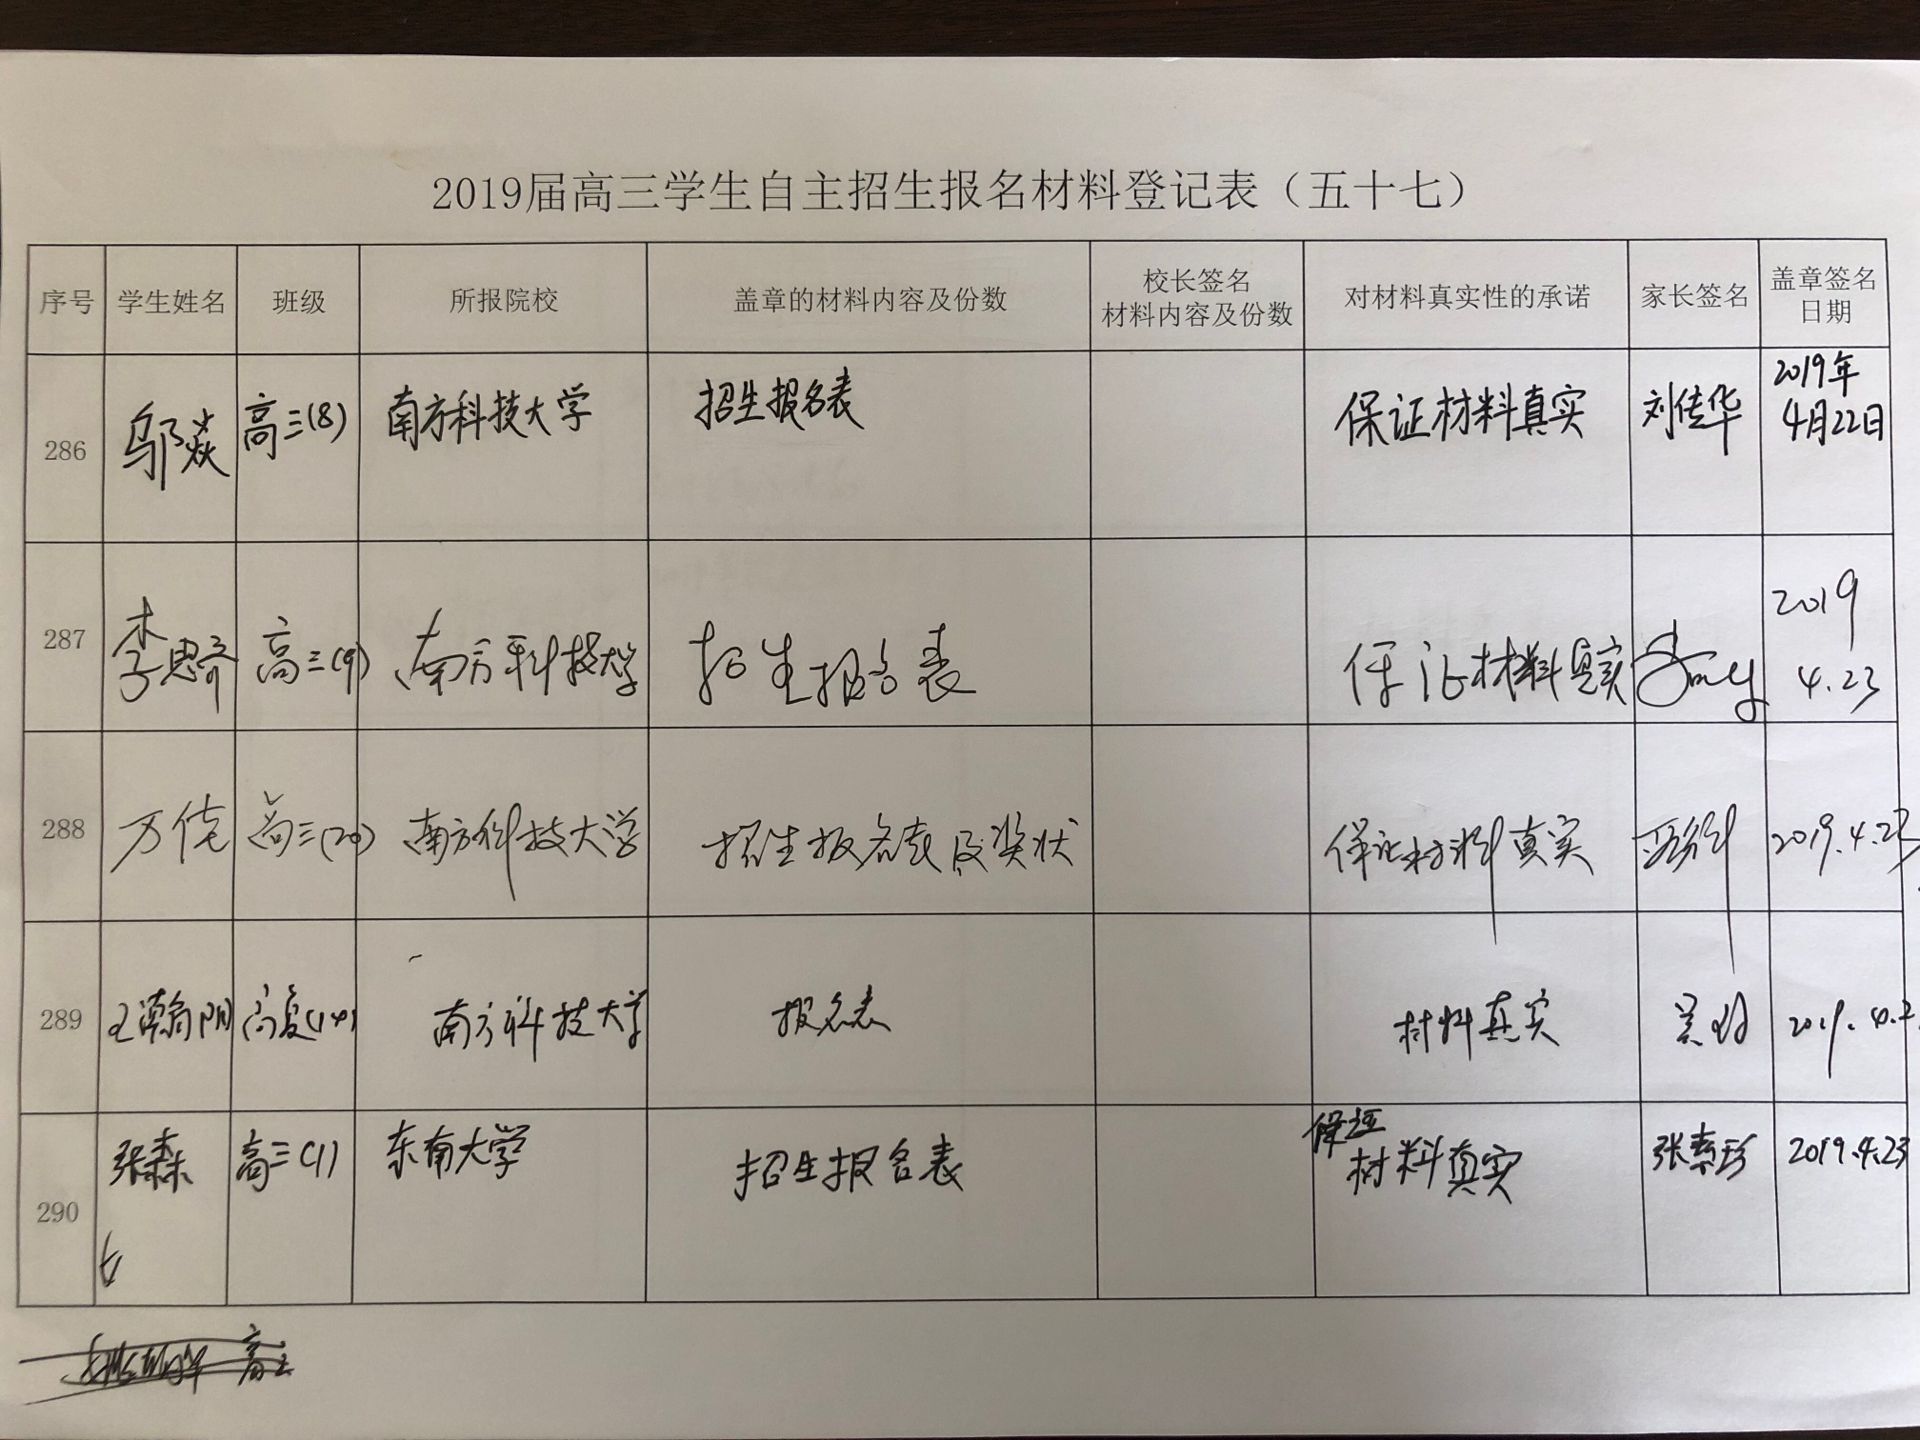 2019届高三学生自主招生报名材料登记表（五十七）
序号 学生姓名 班级 所报院校 盖章的材料内容及份数 校长签名 材料内容及份数 对材料真实性的承诺 家长签名 盖章签名 日期
286 邬焱 高三(8) 南方科技大学 招生报名表 保证材料真实 刘传华 2019年 4月22日
287 李思齐 高三(9) 南方科技大学 招生报名表 保证材料真实 2019 4.23
288 万佬 高三(20) 南方科技大学 招生报名表及奖状 保证材料真实 2019.4.23
289 王瀚阴 高复(14) 南方科技大学 报名表 材料真实 2019.4.2
290 张森 高三(1) 东南大学 招生报名表 保证 材料真实 张素珍 2019.4.23